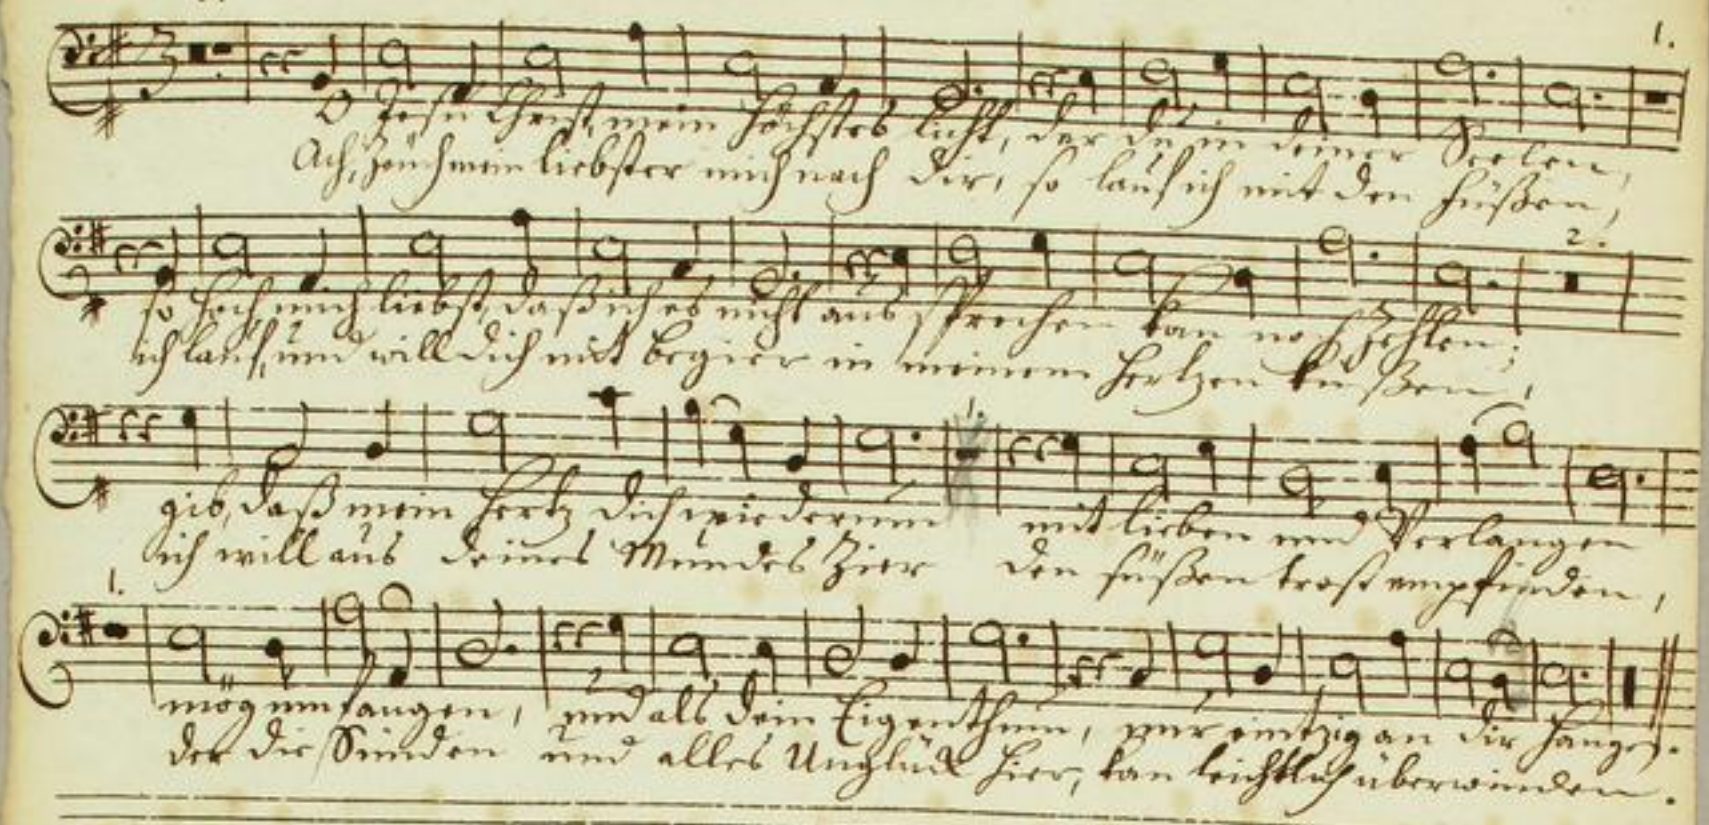 1.
O Jesu Christ, mein höchstes licht, der du in deiner Seelen,
Ach, zeuch mein liebster mich nach dir, so lauf ich mit den füßen,
2.
so hoch mich liebst, daß ich es nicht aus sprechen kan noch zehlen;
ich lauf, und will dich mit begier in meinem hertzen küßen,
1.
gib, daß mein hertz dich wiederum mit lieben und Verlangen
ich will aus deines Mundes Zier den süßen trost empfinden,
1.
mög umfangen, und als dein Eigenthum, nur eintzig an dir hangen.
der die Sünden und alles Unglück hier, kan leichtlich überwinden.